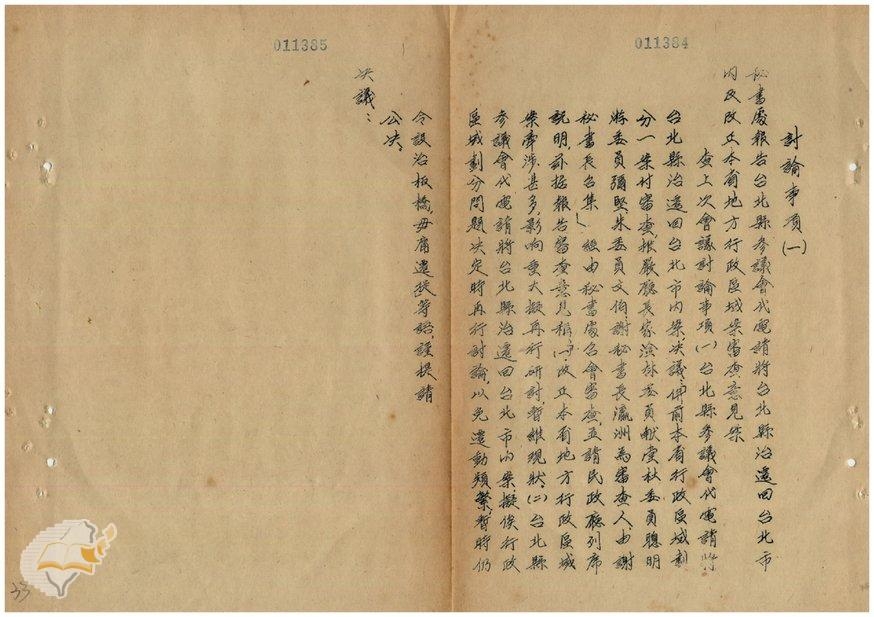 011384
討論事項(一)
秘書處報告台北縣參議會代電請將台北縣治遷回台北市
內及改正本省地方行政區域案審查意見案
查上次會議討論事項(一)台北縣參議會代電請將
台北縣治遷回台北市內案決議「併前本省行政區域劃
分一案付審查,推嚴廳長家淦林委員献堂杜委員聰明
將委員彌堅朱委員文伯,謝秘書長瀛洲為審查人,由謝
秘書長召集」經由秘書處召會審查,並請民政廳列席
說明,茲據報告審查意見稱「(一)改正本省地方行政區域
案牽涉甚多,影响重大擬再行研討,暫維現狀,(二)台北縣
參議會代電請將台北縣治遷回台北市內案擬俟行政
區域劃分問題決定時再行討論,以免遷動頻繁,暫時仍
011385
令設治板橋,毋庸遷移等語,謹提請
公決。
决議:
33